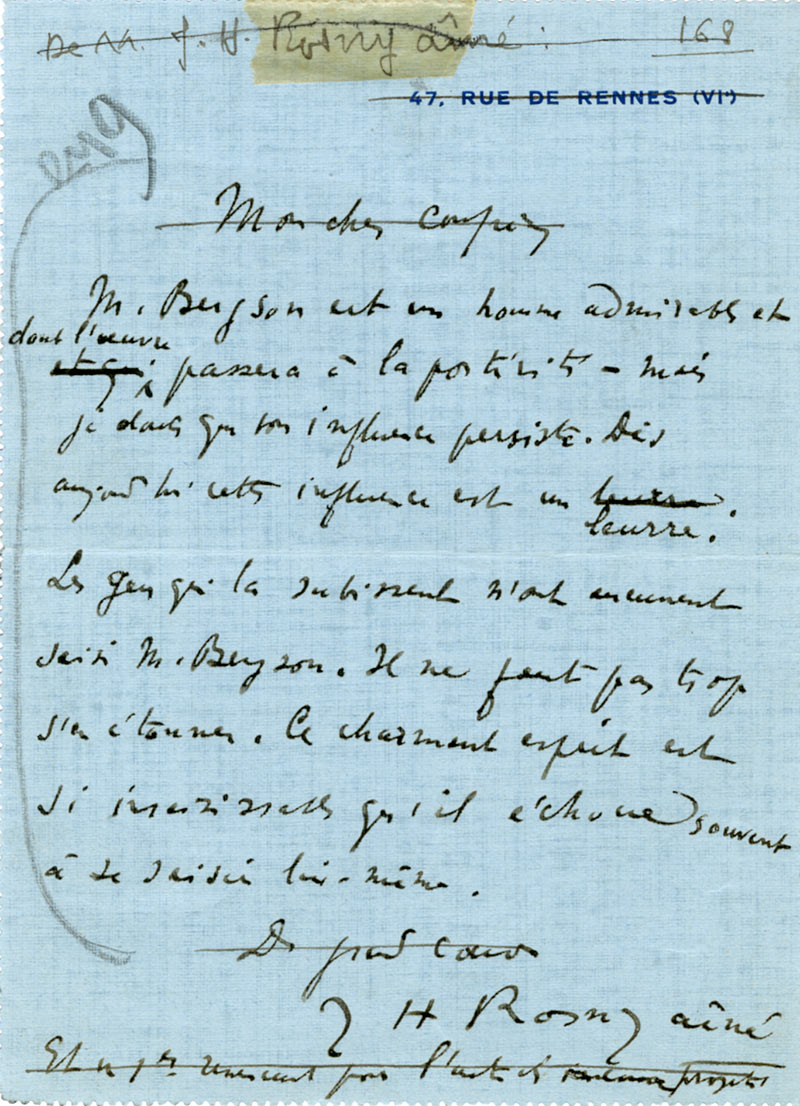 De M. J. H. Rosny aîné. 168
47, RUE DE RENNES (VIe)
Mon cher confrère
M. Bergson est un homme admirable et
dont l'œuvre
et qui passera à la postérité – mais
je doute que son influence persiste. Dès
aujourd'hui cette influence est un leurre
leurre.
Les gens qui la subissent n'ont aucunement
saisi M. Bergson. Il ne faut pas trop
s'en étonner. Ce charmant esprit est
si insaisissable qu'il échoue souvent
à se saisir lui-même.
De grand cœur
J H Rosny aîné
Et un remerciement pour l'article